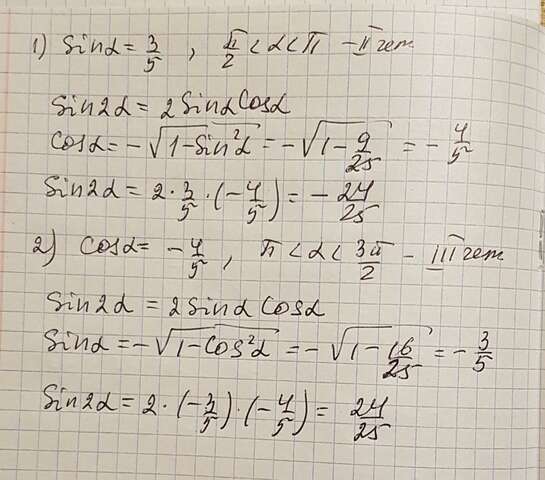 1) Sinα = 3/5 , π/2 < α < π – II чет
Sin2α = 2SinαCosα
Cosα = –√(1–Sin²α) = –√(1–9/25) = –4/5
Sin2α = 2·3/5·(–4/5) = –24/25
2) Cosα = –4/5 , π < α < 3π/2 – III чет
Sin2α = 2Sinα Cosα
Sinα = –√(1–Cos²α) = –√(1–16/25) = –3/5
Sin2α = 2·(–3/5)·(–4/5) = 24/25